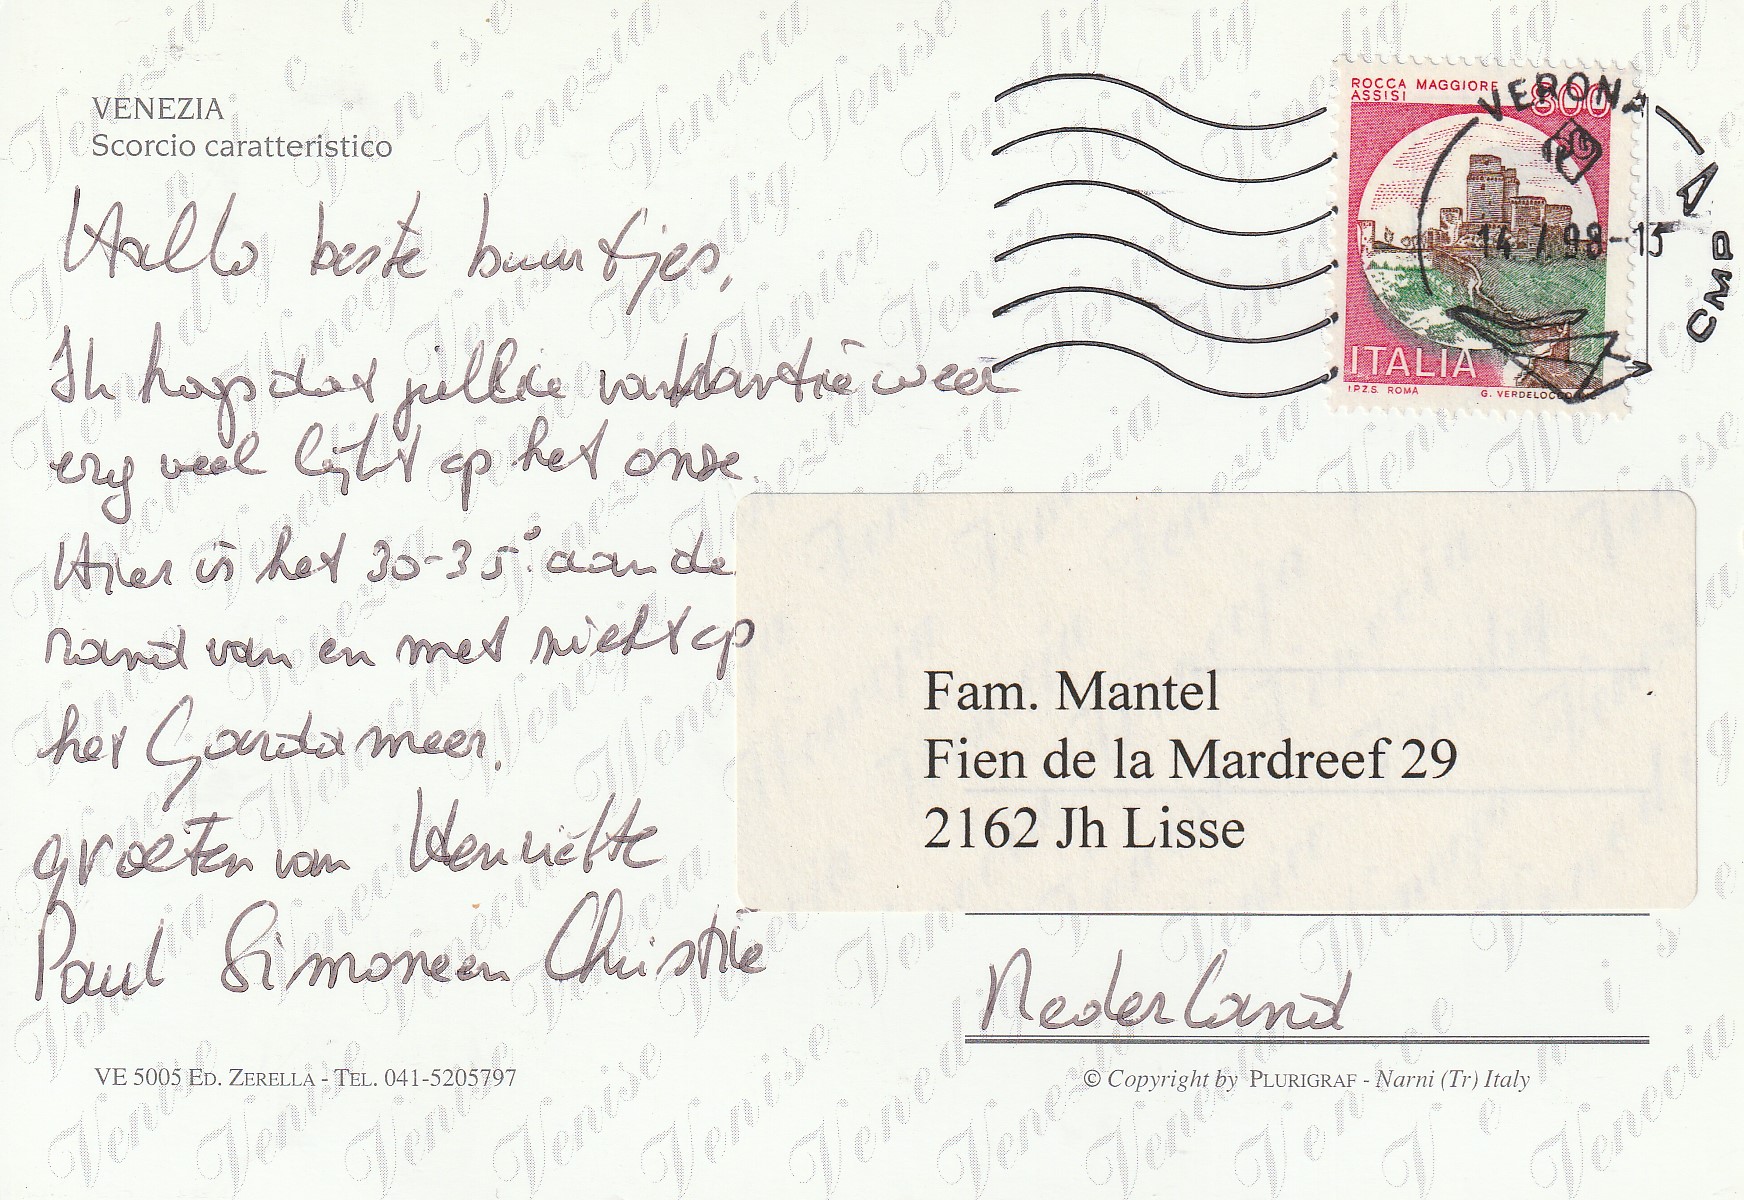 VENEZIA
Scorcio caratteristico
Hallo beste buurtjes,
Ik hoop dat jullie vakantie weer
erg veel lijkt op het onze.
Hier is het 30-35° aan de
rand van en met zicht op
het Gardameer.
groeten van Henriëtte
Paul Simone en Christie
VE 5005 ED. ZERELLA - TEL. 041-5205797
ROCCA MAGGIORE
ASSISI
800
ITALIA
I.P.Z.S. ROMA
VERONA
CMP
98-15
Fam. Mantel
Fien de la Mardreef 29
2162 Jh Lisse
Nederland
© Copyright by PLURIGRAF - Narni (Tr) Italy